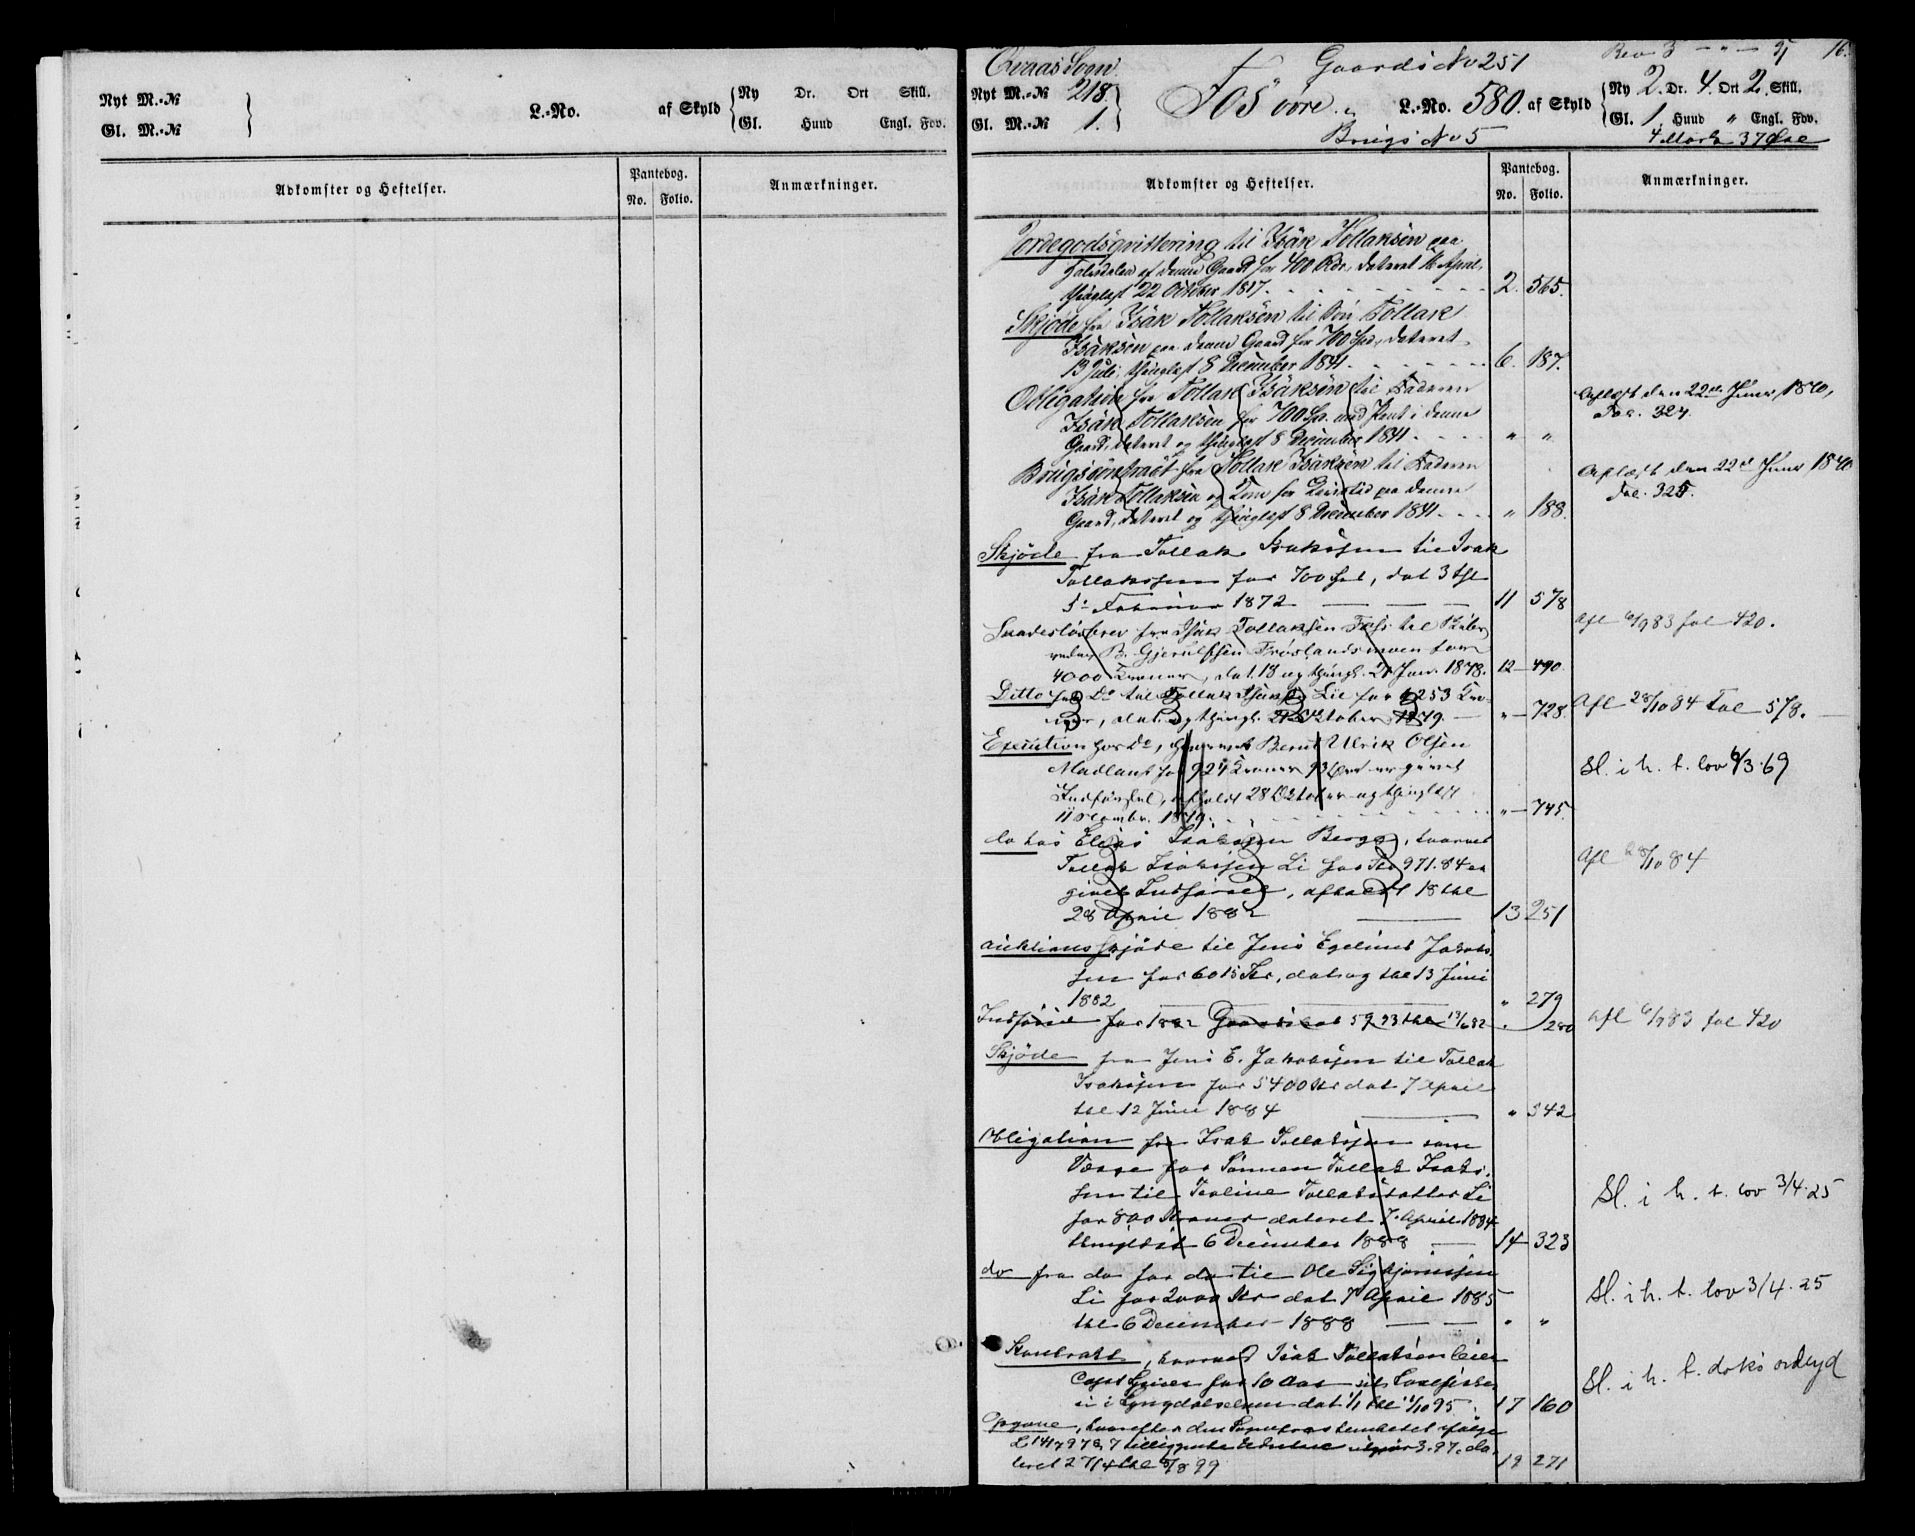 Nyt M.-№
Gl. M.-№
L.-No.
af Skyld
Ny Dr. Ort Skill.
Gl. Hund Engl. Fdv.
Adkomster og Heftelser.
Pantebog.
No. Folio.
Anmærkninger.
Qvaas Sogn
Gaards No 251
Nyt M.-№ 218.
Gl. M.-№ 1.
L.-No. 580. af Skyld
Ny 2. Dr. 4. Ort 2. Skill.
Gl. 1. Hund " Engl. Fdv.
Brugs No 5
4 Mark 37 Øre
Adkomster og Heftelser.
Pantebog.
No. Folio.
Anmærkninger.
Jordegodsqvittering til Isäk Tollaksen paa
af denne Gaard for 400 Rdr, dateret 16 April,
thinglæst 22 October 1817. 2. 565.
Skjøde fra Isäk Tollaksen til Søn Tollak
Isäksen paa denne Gaard for 700 Spd, dateret
13 Juli, thinglæst 8 December 1841. 6. 187.
Obligation fra Tollak Isäksen til Faderen
Isäk Tollaksen for 700 Sp. med Pant i denne
Gaard, dateret og thinglæst 8 December 1841. " "
Aflæst den 22de Juni 1870,
Fol. 324.
Brugscontract fra Tollak Isäksen til Faderen
Isäk Tollaksen og Kone for Levetid paa denne
Gaard, dateret og thinglæst 8 December 1841. " 188.
Aflæst den 22de Juni 1870
Fol. 325.
Skjøde fra Tollak Isaksen til Isak
Tollaksen for 700 Spd, dat 3 thl
5te Februar 1872 11 578
Skadesløsbrev fra Isak Tollaksen Foss til
B. Gjerulfsen Frøslandsmoen for
4000 Kroner, dat. 18 og thingl. 21 Juni 1878. 12 490.
Afl 6/9 83 fol 420.
Ditto fra Do til Tollak Isaksen Lie for 1253 Kro-
ner, dat. og thingl. October 1879. " 728.
Afl 28/10 84 Fol 578.
Execution hos Do, hvorved Bernt Ulrik Olsen
Madland for 924 Kroner 93 Øre er givet
Indførsel, afholdt 28 October og thinglæst
11 Decembr. 1879. " 745.
Sl. i h. t. lov 6/3-69
do hos Elias Isaksen Berge, hvorved
Tollak Isaksen Li for Kr 971.84 er
givet Indførsel, afholdt 18 thl
28 April 1882 13 251
Afl 28/10 84
Auktionsskjøde til Jens Egelius Jakob-
sen for 6015 Kr, dat og thl 13 Juni
1882 " 279
Indførsel for 1882 59,93 thl 13/6 82 " 280
Afl 6/9 83 fol 420
Skjøde fra Jens E. Jakobsen til Tollak
Isaksen for 5400 Kr dat 7 April
thl 12 Juni 1884 " 542
Obligation fra Isak Tollaksen som
Værge for Sønnen Tollak Isak-
sen til Tollaksdatter Li
for 800 Kroner dateret 7. April 1884
thinglæst 6 December 1888 14 323
Sl. i h. t. lov 3/4-25
do fra do for do til Ole Sigbjørnsen
Li for 2000 Kr dat 7 April 1885
thl 6 December 1888 " "
Sl. i h. t. lov 3/4-25
Kontrakt, hvorved Isak Tollaksen leier
for 10 Aar sit Laxefiske
i Lyngdalselven dat 1/1 thl 11/10 95. 17 160
Sl. i h. t. doks ordlyd
Opgave, hvorefter
tilliggende 3.97. da-
teret 27/4 thl 8/8 99 19 271